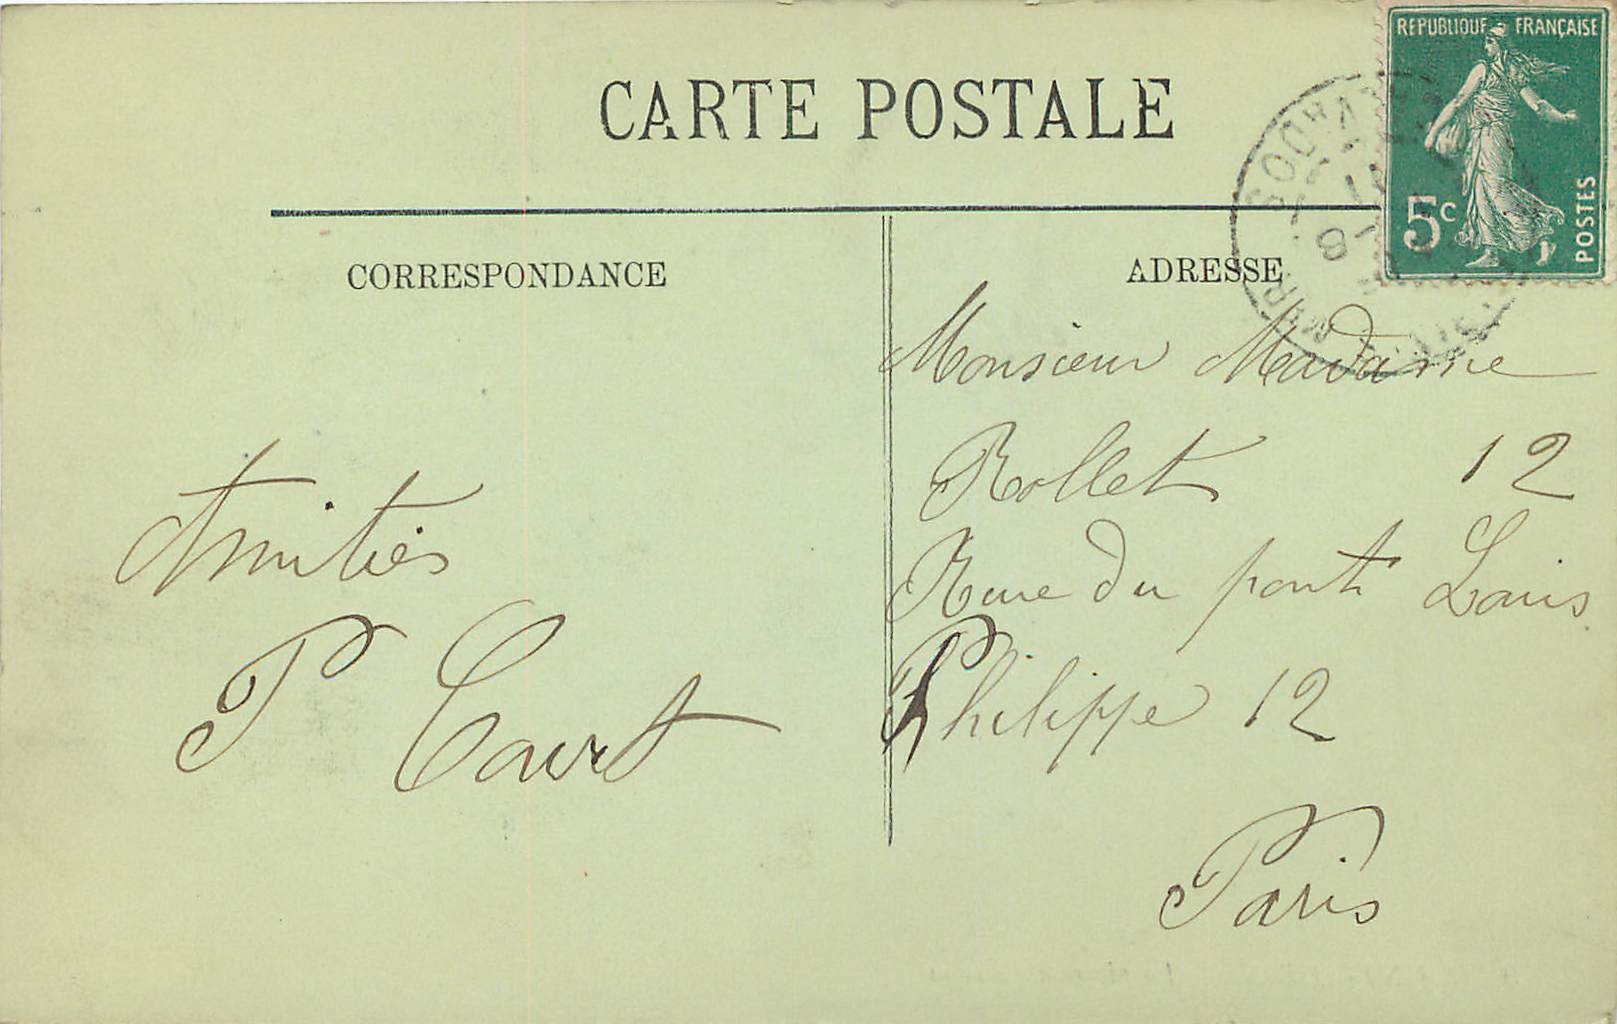 CARTE POSTALE
REPUBLIQUE FRANÇAISE
5c
POSTES
CORRESPONDANCE
ADRESSE
Amitiés
P Court
Monsieur Madame
Rollet 12
Rue du pont Louis
Philippe 12
Paris